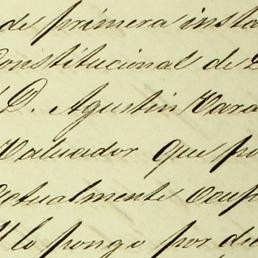 de primera insta
Constitucional de
D. Agustin Vara
Valuador que po
actualmente ocup
Y lo pongo por di